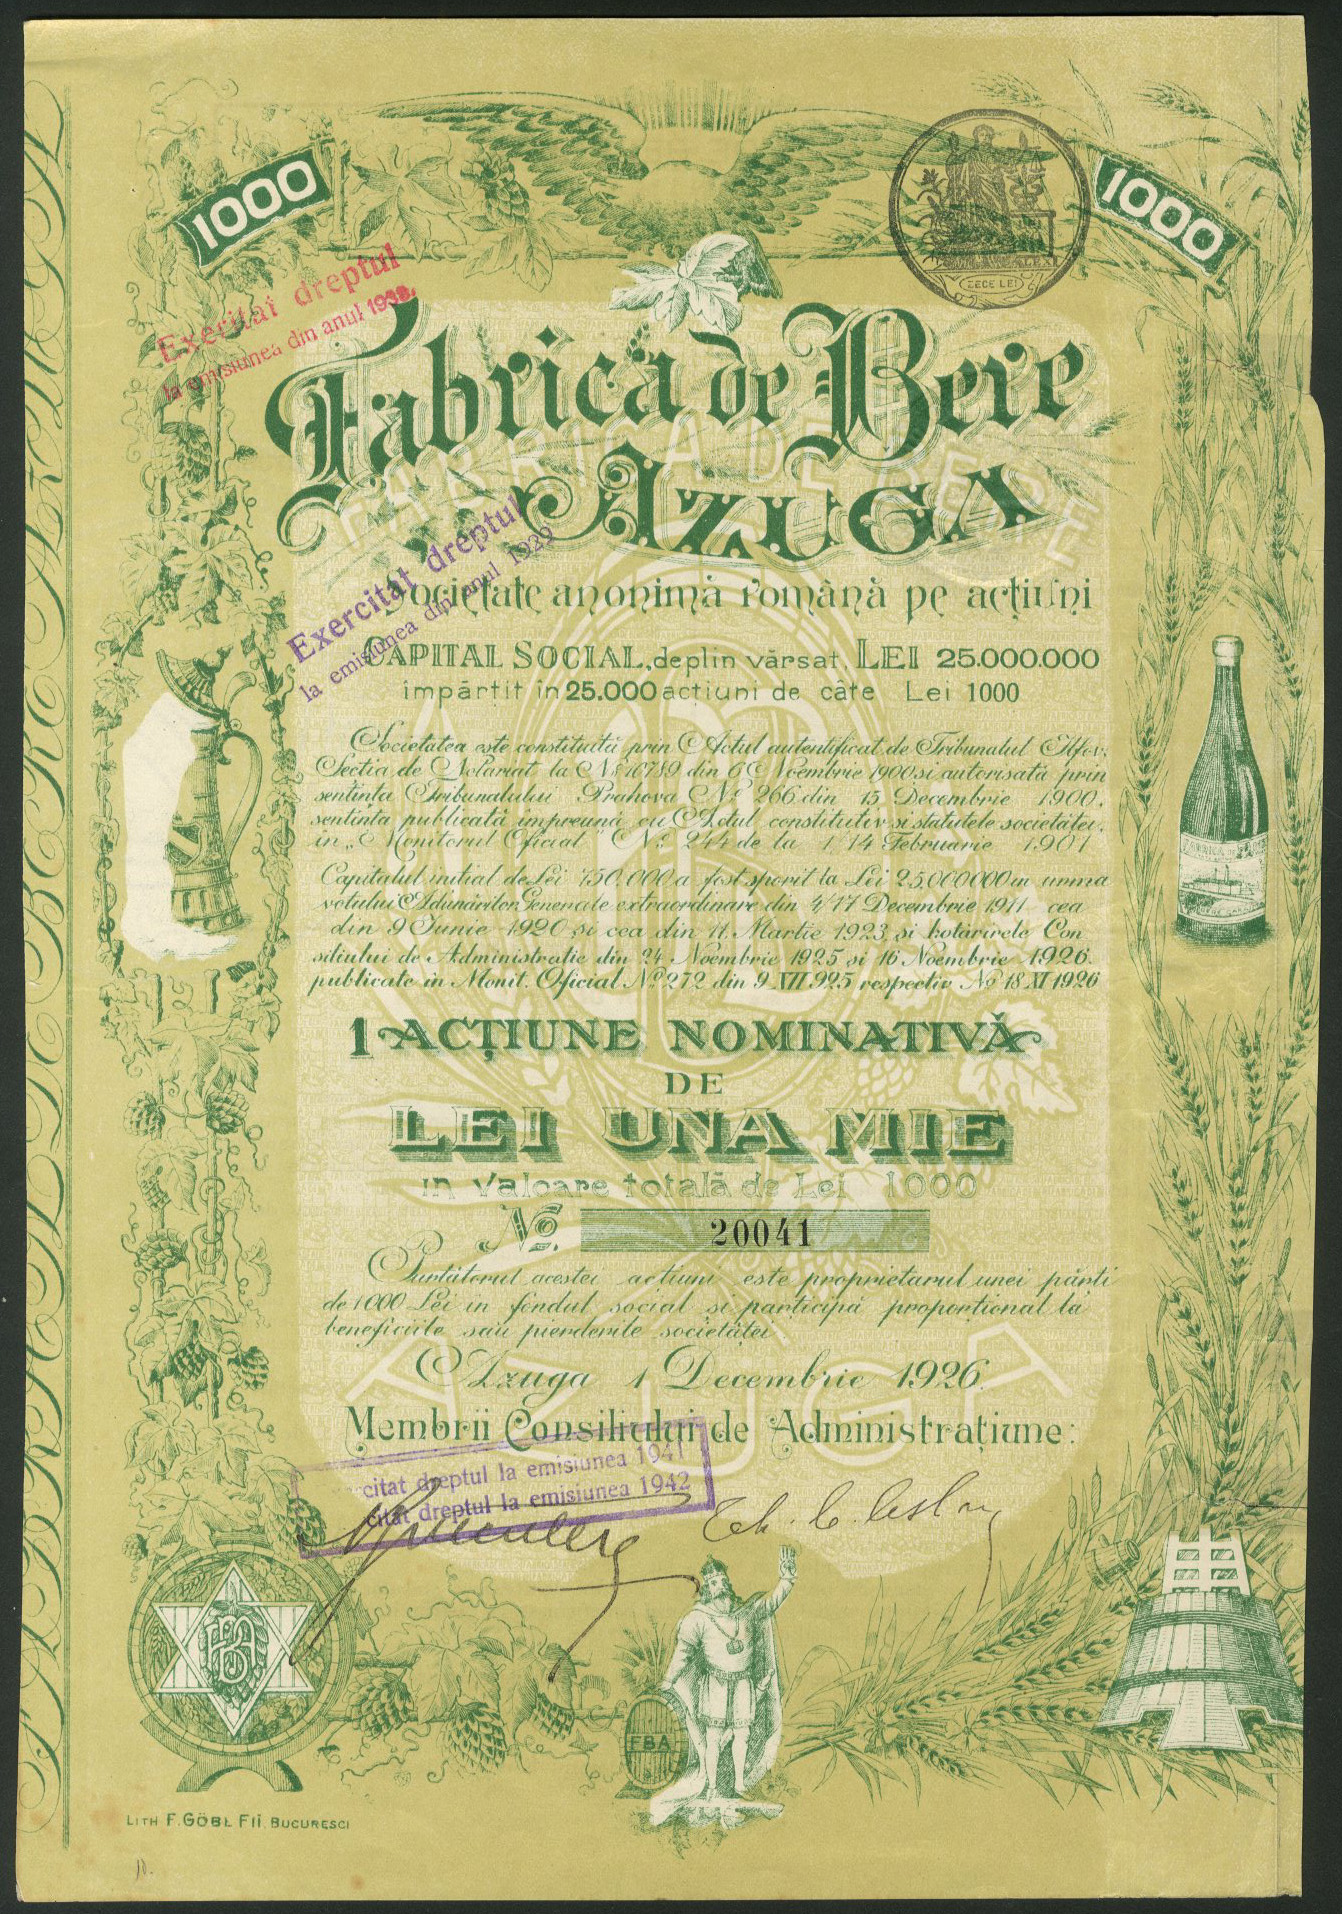 1000
1000
ZECE LEI
Exercitat dreptul
la emisiunea din anul 1938.
Fabrica de Bere
AZUGA
FABRICA DE BERE
Exercitat dreptul
la emisiunea din anul 1929
Societate anonimă română pe acțiuni
CAPITAL SOCIAL, deplin vărsat, LEI 25.000.000
împărtit în 25.000 actiuni de câte Lei 1000
Societatea este constituită prin Actul autentificat de Tribunalul Ilfov,
Sectia de Notariat la No 10789 din 6 Noembrie 1900 si autorisată prin
sentinta Tribunalului Prahova No 266 din 15 Decembrie 1900,
sentinta publicată impreună cu Actul constitutiv si statutele societătei,
in „Monitorul Oficial" No 244 de la 1/14 Februarie 1901
Capitalul initial de Lei 750.000 a fost sporit la Lei 25.000000 in urma
votului Adunărilor Generale extraordinare din 4/17 Decembrie 1911 cea
din 9 Iunie 1920 si cea din 11. Martie 1923 si hotăririle Con
siliului de Administratie din 24 Noembrie 1925 si 16 Noembrie 1926.
publicate in Monit. Oficial No 272 din 9 XII 925 respectiv No 18 XI 1926
1 ACȚIUNE NOMINATIVĂ
DE
LEI UNA MIE
in valoare totală de Lei 1000
No. 20041
Purtătorul acestei actiuni este proprietarul unei părti
de 1000 Lei in fondul social si participă proportional la
beneficiile sau pierderile societătei
Azuga 1 Decembrie 1926.
AZUGA
Membrii Consiliului de Administrațiune:
citat dreptul la emisiunea 1941
citat dreptul la emisiunea 1942
FBA
FBA
LITH F. GÖBL FII. BUCURESCI